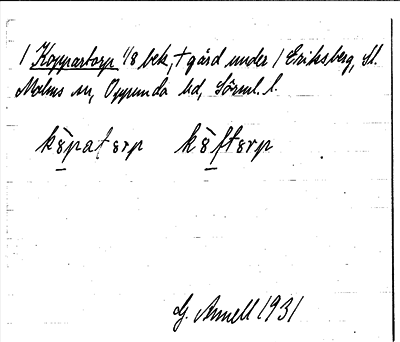 1 Koppartorp 1/8 bek, † gård under 1 Eriksberg, St.
Malms sn, Oppunda hd, Sörml. l.
kòpatorp kòftorp
G. Arnell 1931